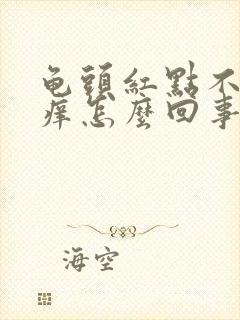 龟頭紅點不
痒怎麼回事
海空